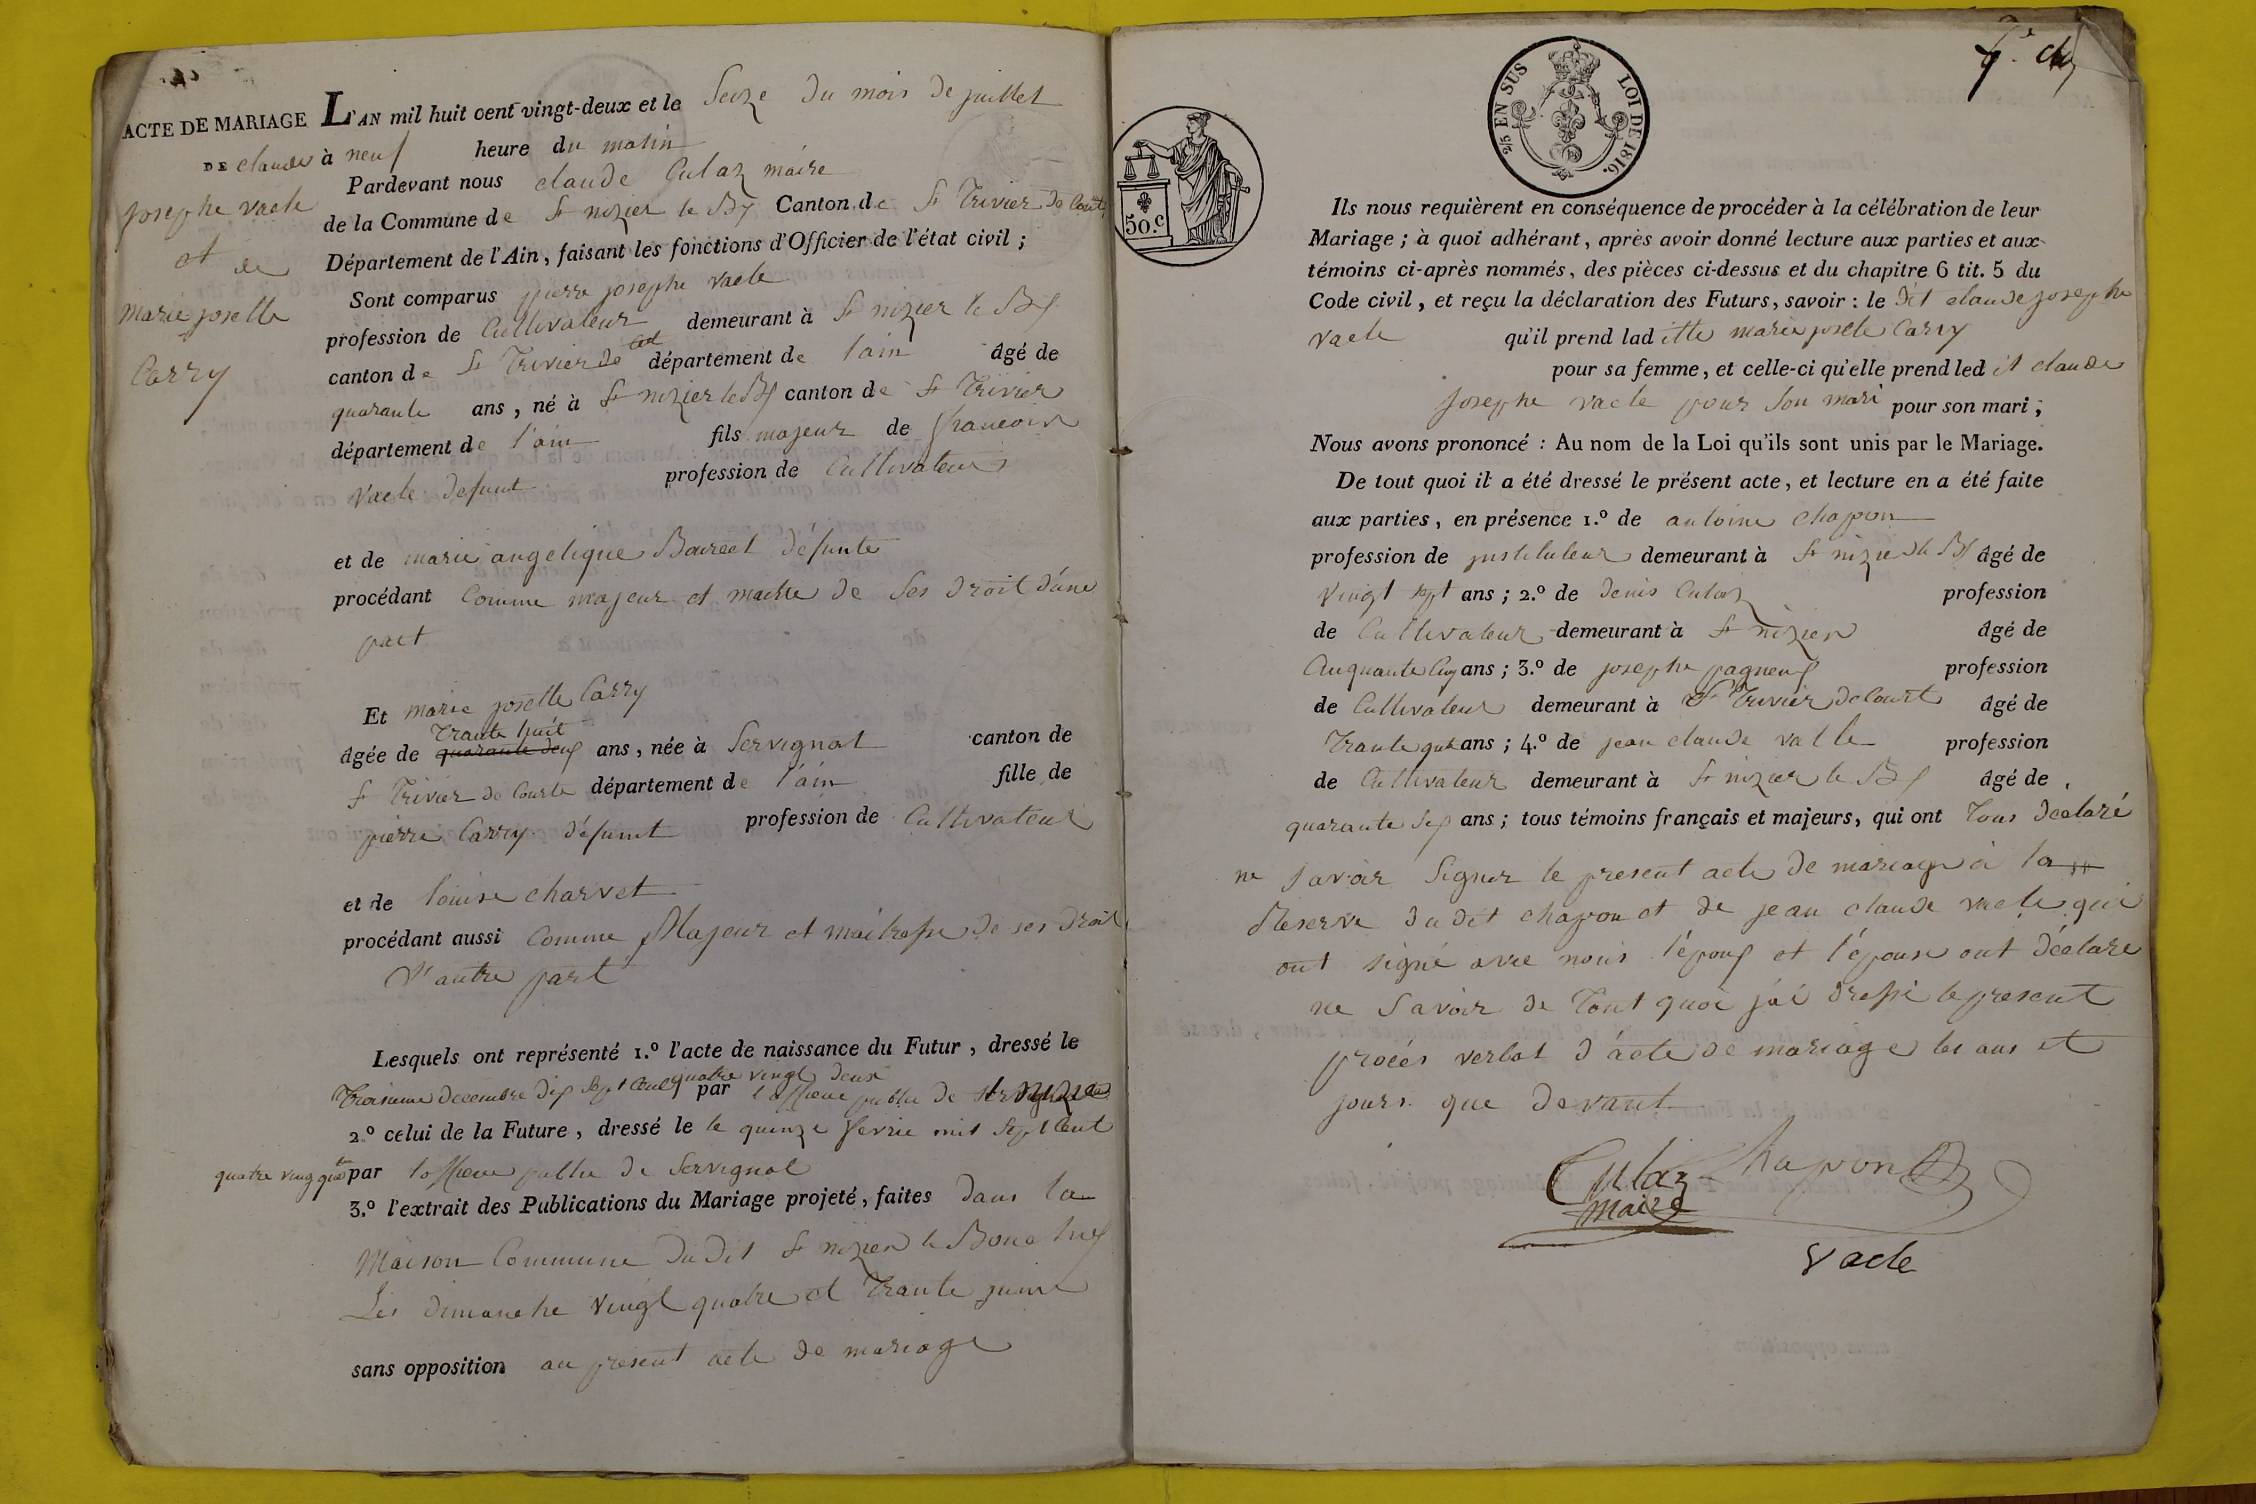 ACTE DE MARIAGE
DE claude
josephe vacle
et de
marie joselle
Carry
L'AN mil huit cent vingt-deux et le Seize du mois de juillet
à neuf heure du matin
Pardevant nous claude Culaz maire
de la Commune de St nizier le Bx Canton de St Trivier de Court
Département de l'Ain, faisant les fonctions d'Officier de l'état civil ;
Sont comparus pierre josephe vacle
profession de Cultivateur demeurant à St nizier le Bx
canton de St Trivier de Cort département de l'ain âgé de
quarante ans, né à St nizier le Bx canton de St Trivier
département de l'ain fils majeur de francois
Vacle defunt profession de Cultivateur
et de marie angelique Bouvet défunte
procédant Comme majeur et maitre de Ses droit d'une
part
Et marie joselle Carry
Trante huit
âgée de quarante deux ans, née à Servignat canton de
St Trivier de Courte département de l'ain fille de
pierre Carry défunt profession de Cultivateur
et de louise charvet
procédant aussi Comme Majeur et maitresse de ses droit
d'autre part
Lesquels ont représenté 1.º l'acte de naissance du Futur, dressé le
quatre vingt deux
Troisieme decembre dix Sept Cent par l'officié public de St nizier
2.º celui de la Future, dressé le le quinze fevrie mil Sept Cent
quatre ving par l'officie public de Servignat
3.º l'extrait des Publications du Mariage projeté, faites dans la
Maison Commune du dit St nizier le Bouchoux
Les dimanche vingt quatre et Trante juin
sans opposition au présent acte de mariage
50.c
2/5 EN SUS LOI DE 1816.
Ils nous requièrent en conséquence de procéder à la célébration de leur
Mariage ; à quoi adhérant, après avoir donné lecture aux parties et aux
témoins ci-après nommés, des pièces ci-dessus et du chapitre 6 tit. 5 du
Code civil, et reçu la déclaration des Futurs, savoir : le dit claude josephe
vacle qu'il prend lad itte marie joselle Carry
pour sa femme, et celle-ci qu'elle prend led it claude
Josephe vacle pour Son mari pour son mari ;
Nous avons prononcé : Au nom de la Loi qu'ils sont unis par le Mariage.
De tout quoi il a été dressé le présent acte, et lecture en a été faite
aux parties, en présence 1.º de antoine chapon
profession de justituteur demeurant à St nizier le Bx âgé de
Vingt sept ans ; 2.º de denis Culaz profession
de Cultivateur demeurant à St nizier âgé de
Cinquante Cinq ans ; 3.º de josephe pagneux profession
de Cultivateur demeurant à St Trivier de Court âgé de
Trante quatre ans ; 4.º de jean claude valle profession
de Cultivateur demeurant à St nizier le Bx âgé de
quarante Six ans ; tous témoins français et majeurs, qui ont Tous déclaré
ne Savoir Signer le present acte de mariage à la
Reserve du dit chapon et de jean claude vacle qui
ont signé avec nous l'époux et l'épouse ont déclaré
ne Savoir de Tout quoi jai dressé le present
procès verbal d'acte de mariage les ans et
jours que devant
Culaz Chapon
maire
Vacle